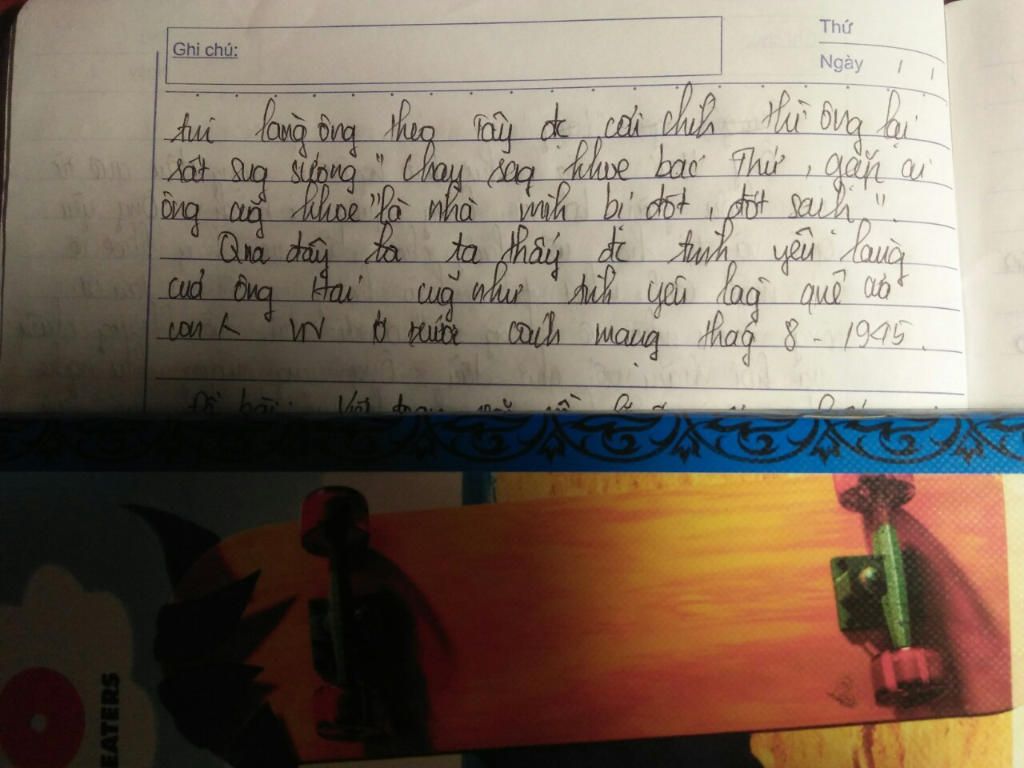 Thứ
Ghi chú:
Ngày / /
tui làng ông theo Tây đc cải chíh thì ông lại
rất sug sướng "chạy sag khoe bác Thứ, gặp ai
ông cũg khoe "là nhà mìh bị đốt, đốt sạch".
Qua đây ta ta thấy đc tình yêu làng
của ông Hai cũg như tìh yêu làg quê của
con VN trước cách mạng thág 8 - 1945.
Đề bài: Viết
EATERS